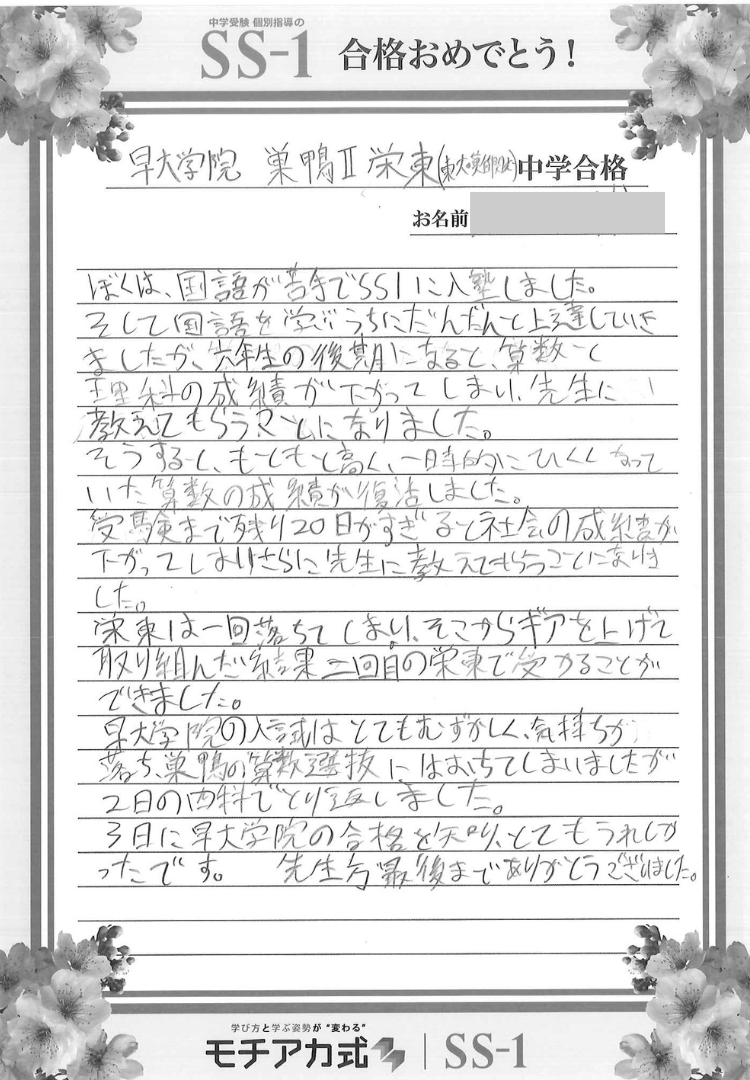 中学受験 個別指導の
SS-1 合格おめでとう!
早大学院 巣鴨Ⅱ 栄東(東大・)中学合格
お名前
ぼくは、国語が苦手でSS1に入塾しました。
そして国語を学ぶうちにだんだんと上達していき
ましたが、六年生の後期になると、算数と
理科の成績が下がってしまい、先生に
教えてもらうことになりました。
そうすると、もともと高く、一時的にひくくなって
いた算数の成績が復活しました。
受験まで残り20日がすぎると社会の成績が
下がってしまいさらに先生に教えてもらうことになりま
した。
栄東は一回落ちてしまい、そこからギアを上げて
取り組んだ結果二回目の栄東で受かることが
できました。
早大学院の入試はとてもむずかしく、気持ちが
落ち、巣鴨の算数選抜にはおちてしまいましたが
2日の四科でとり返しました。
3日に早大学院の合格を知り、とてもうれしか
ったです。 先生方最後までありがとうございました。
学び方と学ぶ姿勢が“変わる”
モチアカ式 | SS-1